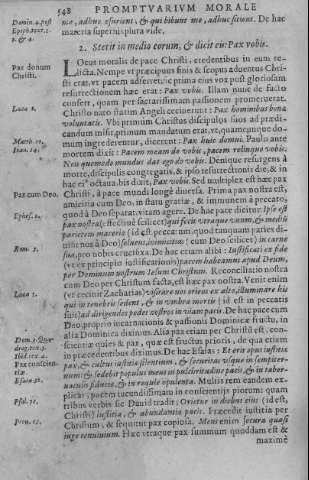 548 PROMPTVARIVM MORALE
me, adhuc esurient, & qui bibunt me, adhuc sitient. De hac
materia superius plura vide.
2. Stetit in medio eorum, & dicit eis: Pax vobis.
Locus moralis de pace Christi, credentibus in eum re-
licta. Nempe vt præcipuus finis & scopus aduentus Chri-
sti erat, vt pacem adferret: ita prima eius vox post gloriosam
resurrectionem hæc erat: Pax vobis. Illam nunc de facto
confert, quam per sacratissimam passionem promeruerat.
Christo nato statim Angeli cecinerunt: Pax hominibus bona
voluntatis. Vbi primum Christus discipulos suos ad prædi-
candum misit, primum mandatum erat, vt, quamcunque do-
mum ingrederentur, dicerent: Pax huic domui. Paulo ante
mortem dixit: Pacem meam do vobis, pacem relinquo vobis.
Non quomodo mundus dat ego do vobis. Denique resurgens à
morte, discipulis congregatis, & ipso resurrectionis die, & in
hac eius octaua bis dixit, Pax vobis. Sed multiplex est hæc pax
Christi, à pace mundi longè diuersa. Prima pax nostra est,
amicitia cum Deo, in statu gratiæ, & immunem à peccato,
quod à Deo separat, vitam agere. De hac pace dicitur: Ipse est
pax nostra, (Christus scilicet) qui fecit vtraque vnum, & medium
parietem maceriæ (id est peccatum, quod tanquam paries di-
uisit nos à Deo) soluens, inimicitias (cum Deo scilicet) in carne
sua, pro nobis crucifixa. De hac etiam alibi: Iustificati ex fide
(vt ex principio iustificationis) pacem habeamus apud Deum,
per Dominum nostrum Iesum Christum. Reconciliatio nostra
cum Deo per Christum facta, est hæc pax nostra. Venit enim
(vt cecinit Zacharias) visitare nos oriens ex alto, illuminare his
qui in tenebris sedent, & in vmbra mortis (id est in peccatis
suis) ad dirigendos pedes nostros in viam pacis. De hac pace cum
Deo, proprio incarnationis & passionis Dominicæ fructu, in
alia Dominica diximus. Alia pax etiam per Christum est, con-
scientiæ quies & pax, quæ est fructus prioris, de qua etiam
in præcedentibus diximus. De hac Esaias: Et erit opus iustitiæ
pax, & cultus iustitiæ silentium, & securitas vsque in sempiter-
num: & sedebit populus meus in pulchritudine pacis, & in taber-
naculis fiduciæ, & in requie opulenta. Multis rem eandem ex-
plicat; pacem iucundissimam in conscientijs piorum: quam
tribus verbis sic Dauid tradit: Orietur in diebus eius (id est,
Christi) iustitia, & abundantia pacis. Præcedit iustitia per
Christum, & sequitur pax copiosa. Mens enim secura quasi
iuge conuiuium. Hæc vtraque pax summum quoddam est &
maximè
Pax donum
Christi.
Luca 2.
Ioan. 14.
Pax cum Deo.
Ephes. 2.
Rom. 5.
Luca 1.
Pax conscien-
tiæ.
Esaiæ 32.
Psal. 71.
Prou. 15.